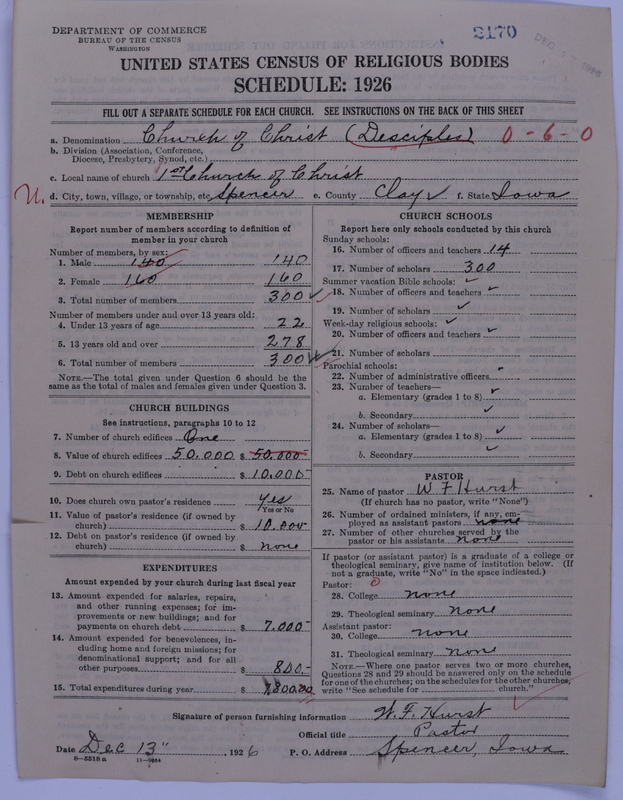 DEPARTMENT OF COMMERCE
BUREAU OF THE CENSUS
WASHINGTON
2170
UNITED STATES CENSUS OF RELIGIOUS BODIES
SCHEDULE: 1926
FILL OUT A SEPARATE SCHEDULE FOR EACH CHURCH. SEE INSTRUCTIONS ON THE BACK OF THIS SHEET
a. Denomination Church of Christ (Desciples) 0-6-0
b. Division (Association, Conference, Diocese, Presbytery, Synod, etc.)
c. Local name of church 1st Church of Christ
U. d. City, town, village, or township, etc. Spencer e. County Clay f. State Iowa
MEMBERSHIP
Report number of members according to definition of member in your church
Number of members, by sex:
1. Male 140 140
2. Female 160 160
3. Total number of members 300
Number of members under and over 13 years old:
4. Under 13 years of age 22
5. 13 years old and over 278
6. Total number of members 300
NOTE.—The total given under Question 6 should be the same as the total of males and females given under Question 3.
CHURCH BUILDINGS
See instructions, paragraphs 10 to 12
7. Number of church edifices One
8. Value of church edifices 50.000 $ 50.000-
9. Debt on church edifices $ 10.000-
10. Does church own pastor's residence Yes
(Yes or No
11. Value of pastor's residence (if owned by church) $ 10.000
12. Debt on pastor's residence (if owned by church) $ none
EXPENDITURES
Amount expended by your church during last fiscal year
13. Amount expended for salaries, repairs, and other running expenses; for improvements or new buildings; and for payments on church debt $ 7.000-
14. Amount expended for benevolences, including home and foreign missions; for denominational support; and for all other purposes $ 800.-
15. Total expenditures during year $ 7,800.00
CHURCH SCHOOLS
Report here only schools conducted by this church
Sunday schools:
16. Number of officers and teachers 14
17. Number of scholars 300
Summer vacation Bible schools:
18. Number of officers and teachers
19. Number of scholars
Week-day religious schools:
20. Number of officers and teachers
21. Number of scholars
Parochial schools:
22. Number of administrative officers
23. Number of teachers—
a. Elementary (grades 1 to 8)
b. Secondary
24. Number of scholars—
a. Elementary (grades 1 to 8)
b. Secondary
PASTOR
25. Name of pastor W F Hurst
(If church has no pastor, write "None")
26. Number of ordained ministers, if any, employed as assistant pastors none
27. Number of other churches served by the pastor or his assistants none
If pastor (or assistant pastor) is a graduate of a college or theological seminary, give name of institution below. (If not a graduate, write "No" in the space indicated.)
Pastor: 0
28. College none
29. Theological seminary none
Assistant pastor:
30. College none
31. Theological seminary none
NOTE.—Where one pastor serves two or more churches, Questions 28 and 29 should be answered only on the schedule for one of the churches; on the schedules for the other churches, write "See schedule for church."
Signature of person furnishing information W. F. Hurst
Official title Pastor
Date Dec 13", 1926 P. O. Address Spencer, Iowa
8-5518a 11-9084